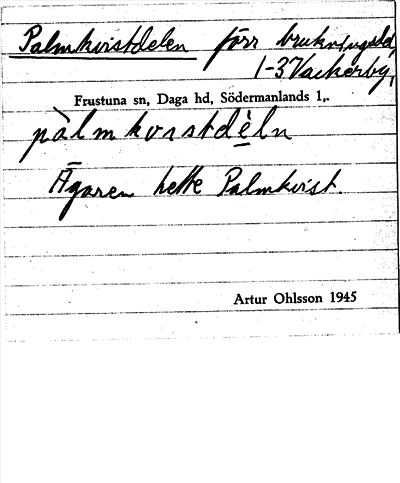 Palmkvistdelen förr brukningsdel,
1-3 Vackerby,
Frustuna sn, Daga hd, Södermanlands l,.
pàlmkvistdè̲ln
Ägaren hette Palmkvist.
Artur Ohlsson 1945